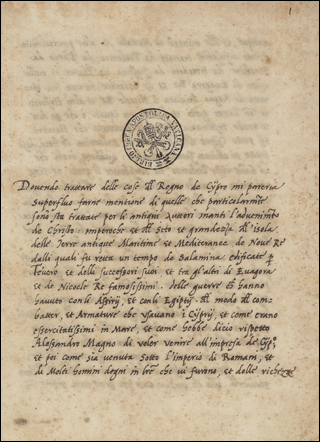 1
BIBLIOTECA APOSTOLICA VATICANA
Dovendo trattare delle cose del Regno de Cipro mi pareria
superfluo farne mentione di quelle che particolarmẽte
sono sta trattate per li antiqui Auttori inanti l'advenimẽto
de Christo: imperoche et del sito et grandezza del Isola
delle Terre antique Maritime et Mediteranee de Nove Re
dalli quali fu retta un tempo de Salamina edificata p
Teucro et delli successori suoi et fra gl'altri di Evagora
et de Nicocle Re famosissimi. delle guerre ch̃ hanno
havuto con li Assirij, et con li Egiptij del modo del com-
batter, et Armature che usavano i Cyprij, et come erano
essercitatissimi in Mare, et come hebbe rispetto
Alessandro Magno di voler venire all'impresa de
et poi come sia venuta sotto l'imperio di Romani, et
di Molti homini degni in che vi furono, et delle richezze